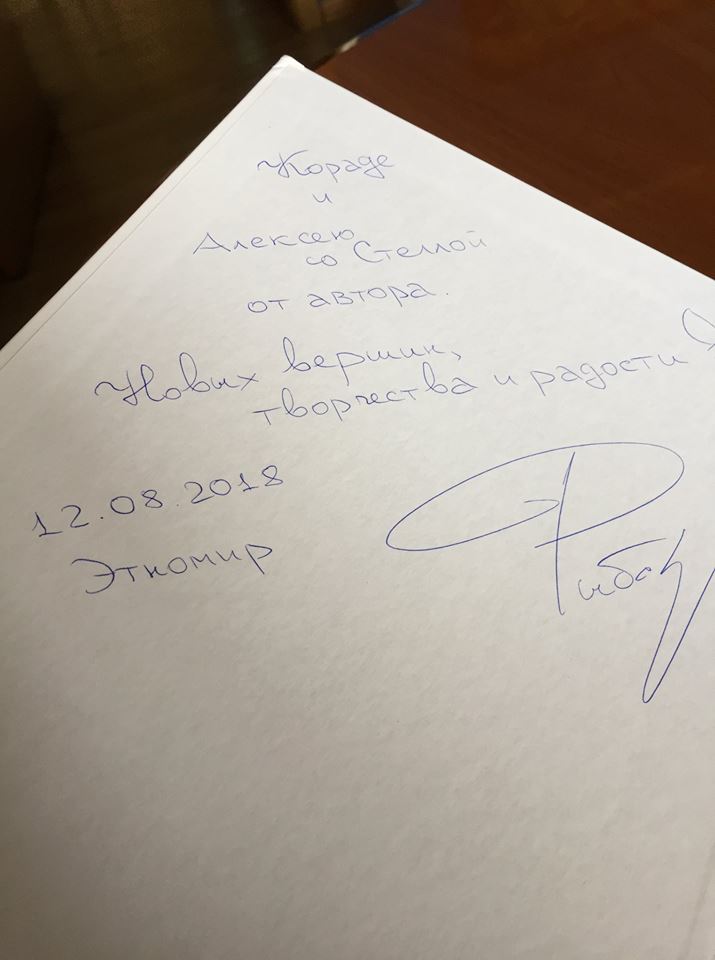 Кораде
и
Алексею
со Стеллой
от автора.
Новых вершин,
творчества и радости
12.08.2018
Этномир